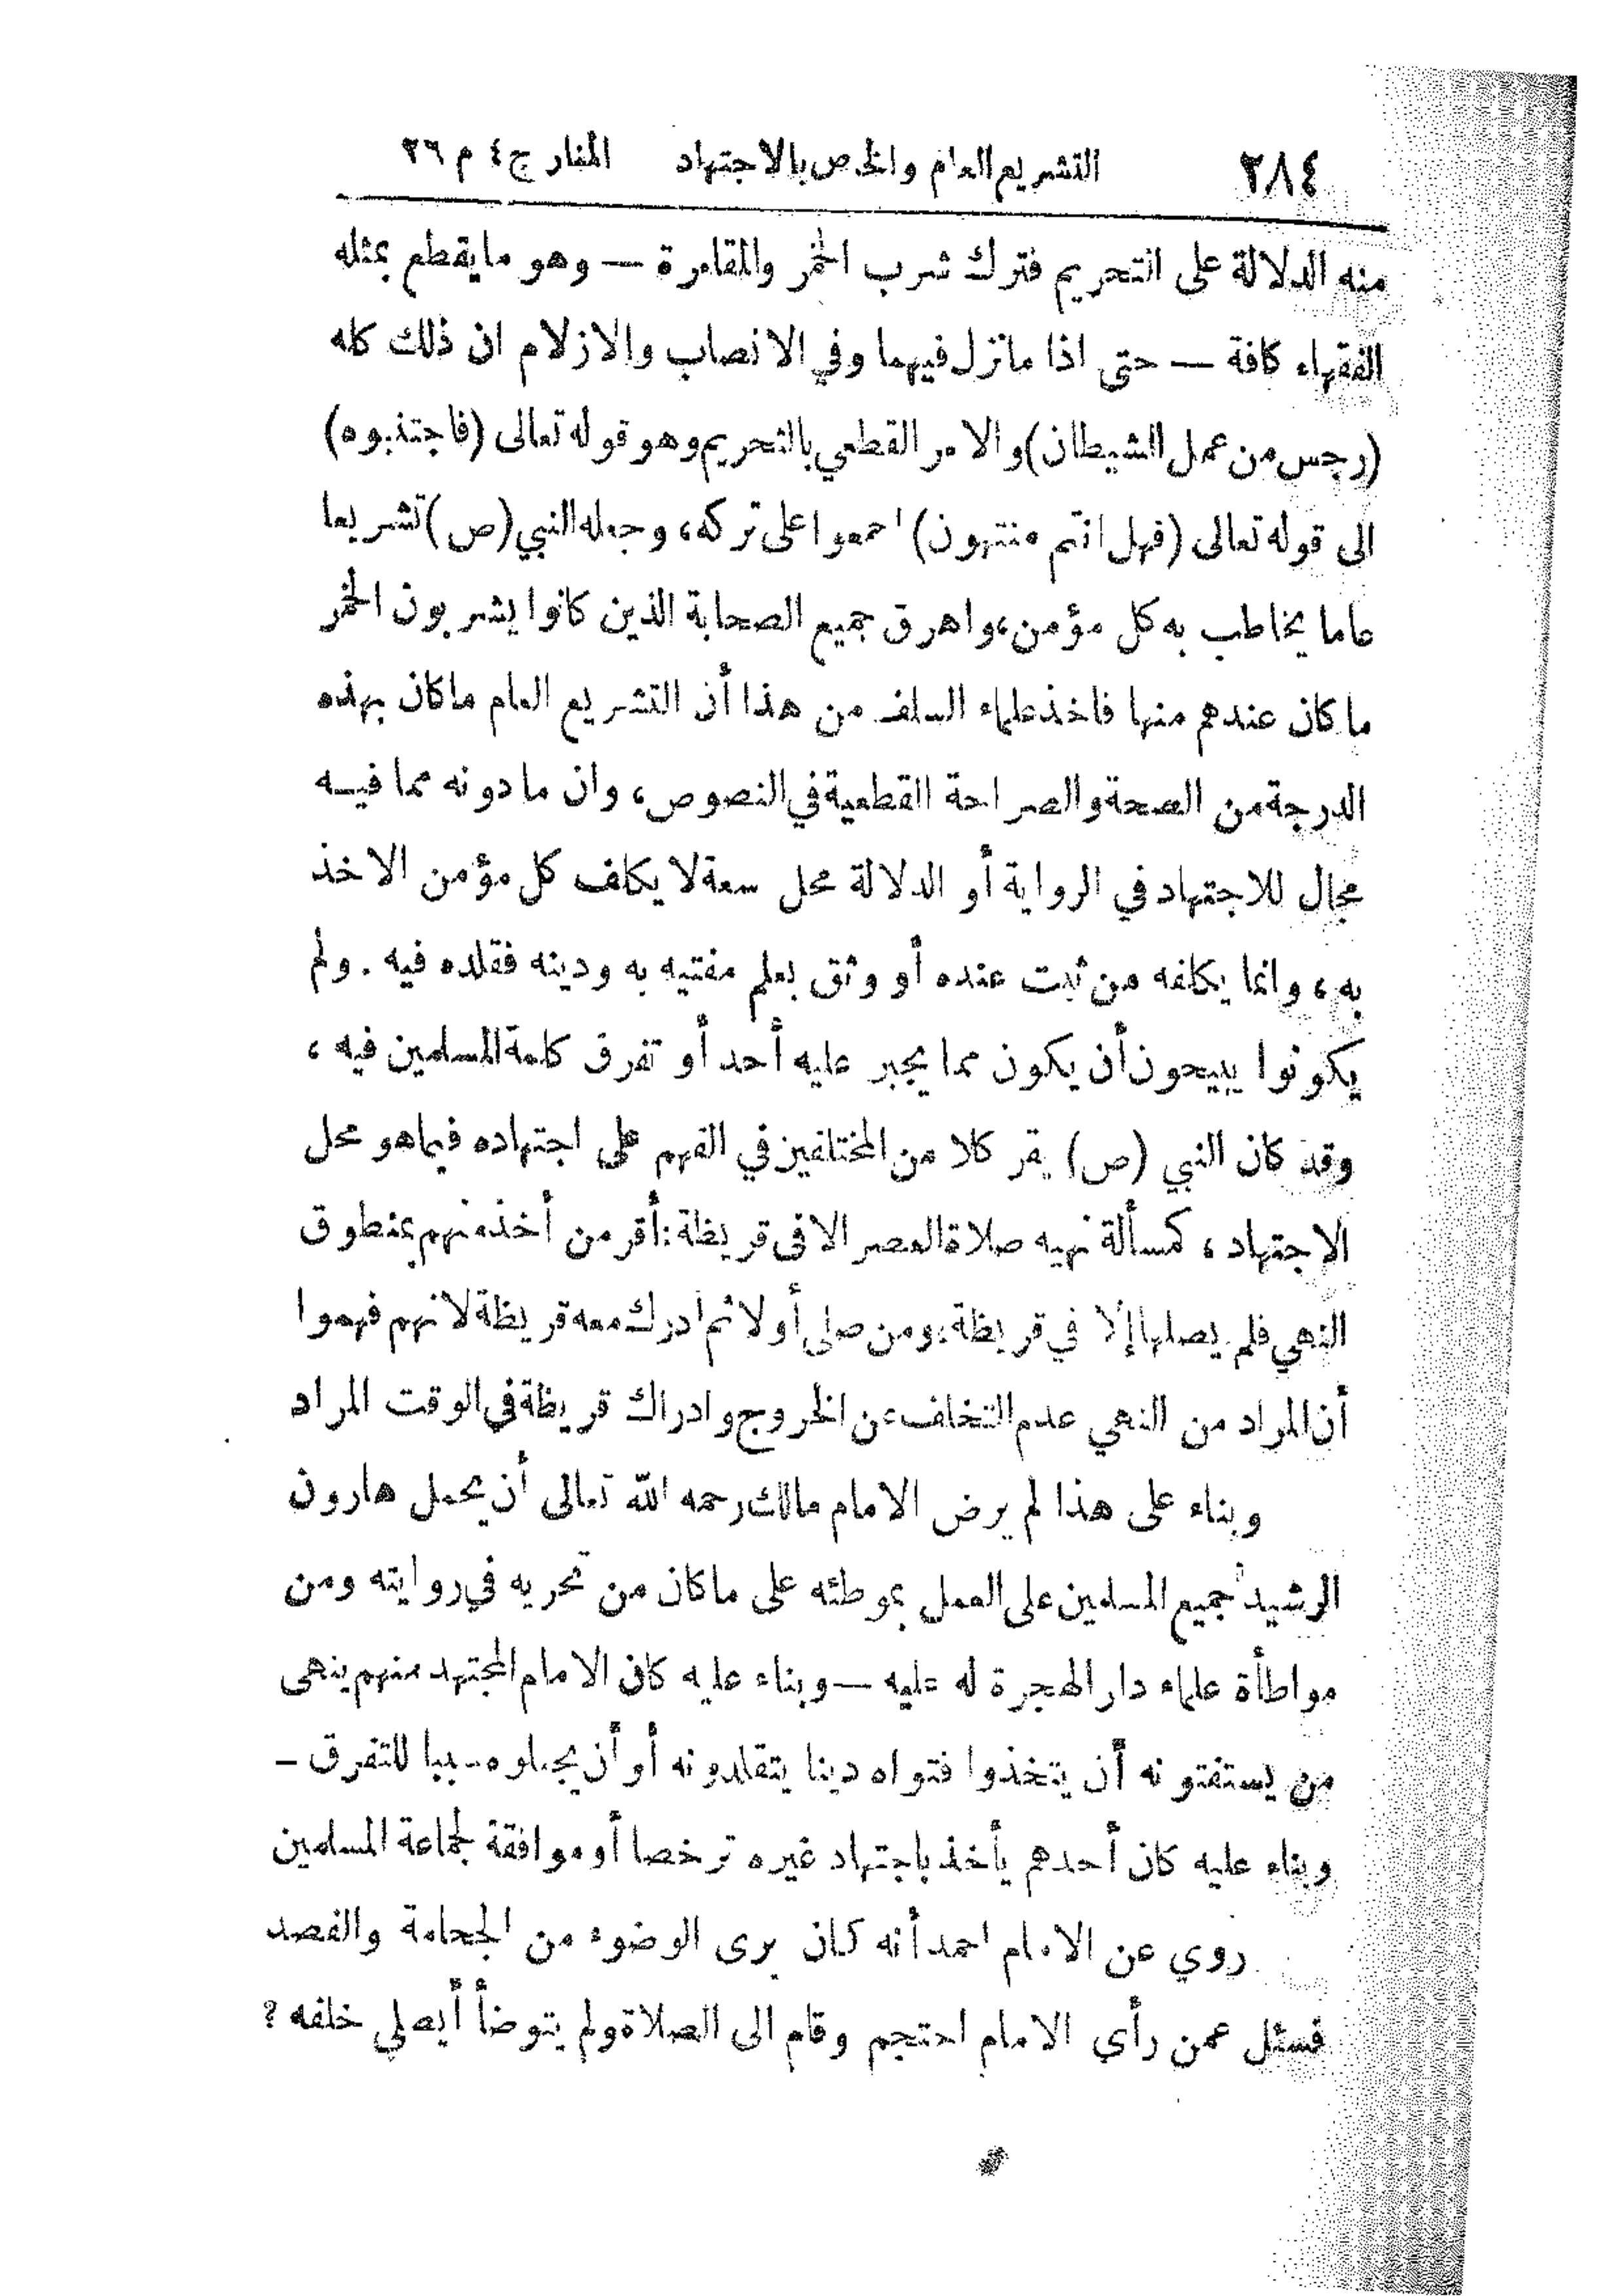 ٢٨٤ التشريع العام والخاص بالاجتهاد المنار ج٤ م ٢٦
منه الدلالة على التحريم فترك شرب الخمر والمقامرة — وهو ما يقطع بمثله
الفقهاء كافة — حتى اذا ما نزل فيهما وفي الانصاب والازلام ان ذلك كله
(رجس من عمل الشيطان) والامر القطعي بالتحريم وهو قوله تعالى (فاجتنبوه)
الى قوله تعالى (فهل انتم منتهون) اجمعوا على تركه، وجعله النبي (ص) تشريعا
عاما يخاطب به كل مؤمن، واهرق جميع الصحابة الذين كانوا يشربون الخمر
ما كان عندهم منها فاخذ علماء السلف من هذا أن التشريع العام ما كان بهذه
الدرجة من الصحة والصراحة القطعية في النصوص، وان ما دونه مما فيه
مجال للاجتهاد في الرواية أو الدلالة محل سعة لا يكلف كل مؤمن الاخذ
به، وانما يكلفه من ثبت عنده أو وثق بعلم مفتيه به ودينه فقلده فيه . ولم
يكونوا يبيحون أن يكون مما يجبر عليه أحد أو تفرق كلمة المسلمين فيه ،
وقد كان النبي (ص) يقر كلا من المختلفين في الفهم على اجتهاده فيما هو محل
الاجتهاد ، كمسألة نهيه صلاة العصر الا في قريظة : أقر من أخذ منهم بمنطوق
النهي فلم يصلها إلا في قريظة، ومن صلى أولا ثم أدرك معه قريظة لانهم فهموا
أن المراد من النهي عدم التخلف عن الخروج وادراك قريظة في الوقت المراد
وبناء على هذا لم يرض الامام مالك رحمه الله تعالى أن يحمل هارون
الرشيد جميع المسلمين على العمل بموطئه على ما كان من تحريه في روايته ومن
مواطأة علماء دار الهجرة له عليه — وبناء عليه كان الامام المجتهد منهم ينهى
من يستفتونه أن يتخذوا فتواه دينا يتقلدونه أو أن يجعلوه سببا للتفرق –
وبناء عليه كان أحدهم يأخذ باجتهاد غيره ترخصا أو موافقة لجماعة المسلمين
روي عن الامام احمد أنه كان يرى الوضوء من الحجامة والفصد
فسئل عمن رأى الامام احتجم وقام الى الصلاة ولم يتوضأ أيصلي خلفه ؟